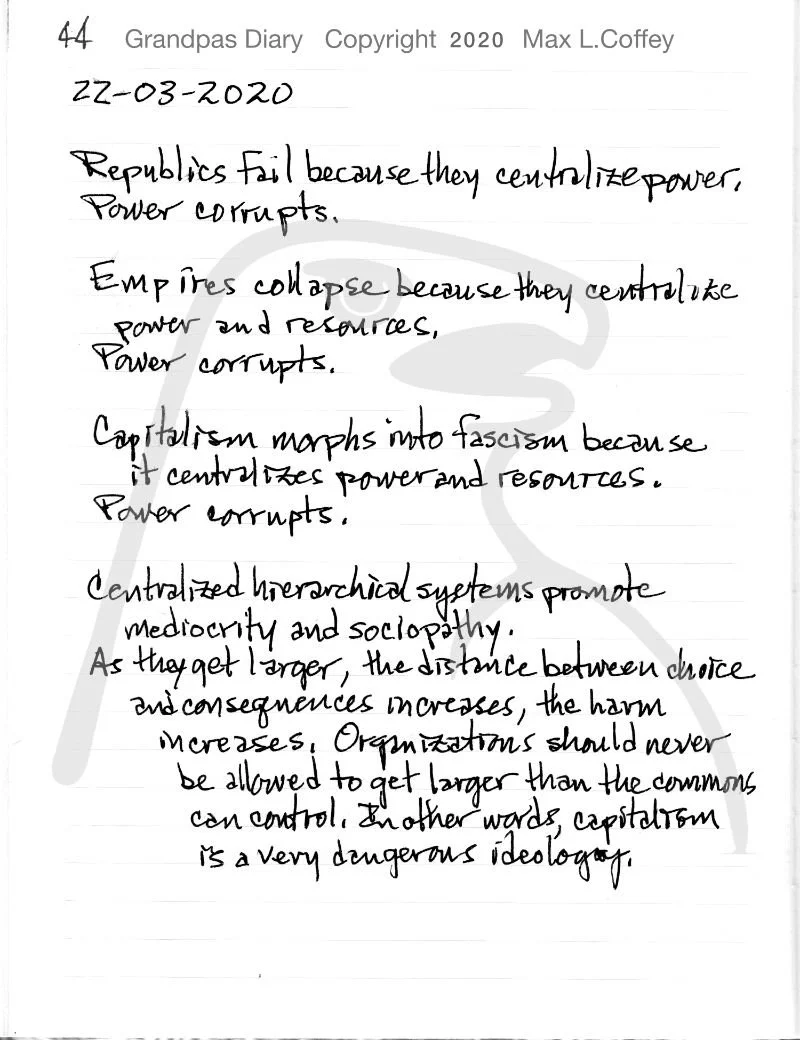 44 Grandpas Diary Copyright 2020 Max L.Coffey
22-03-2020
Republics fail because they centralize power.
Power corrupts.
Empires collapse because they centralize
power and resources.
Power corrupts.
Capitalism morphs into fascism because
it centralizes power and resources.
Power corrupts.
Centralized hierarchical systems promote
mediocrity and sociopathy.
As they get larger, the distance between choice
and consequences increases, the harm
increases. Organizations should never
be allowed to get larger than the commons
can control. In other words, capitalism
is a very dangerous ideology.